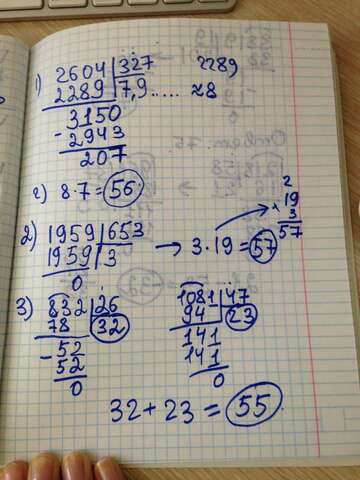 1) 2604 | 327 2289
2289 | 7,9..... ≈8
3150
- 2943
207
2) 8·7 = 56
2) 1959 | 653 → 3·19 = 57
1959 | 3
0
2
19
× 3
57
3) 832 | 26
78 | 32
- 52
52
0
1081 | 47
94 | 23
141
141
0
32 + 23 = 55